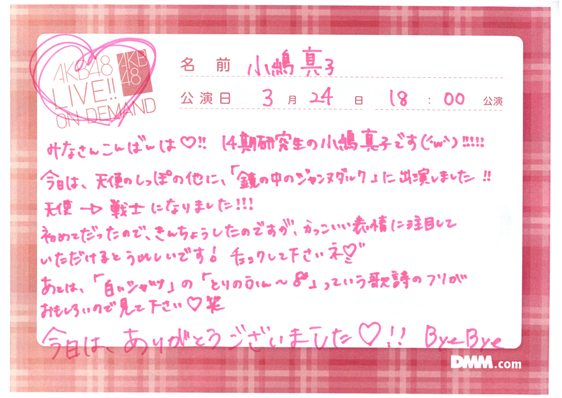 AKB48
LIVE!!
ON DEMAND
AKB
48
名前 小嶋真子
公演日 3月24日 18:00公演
みなさんこんばんは♡!! 14期研究生の小嶋真子です(・ω・)!!!!!
今日は、天使のしっぽの他に、「鏡の中のジャンヌダルク」に出演しました!!
天使→戦士になりました!!!
初めてだったので、きんちょうしたのですが、かっこいい表情に注目して
いただけるとうれしいです! チェックして下さいネ♡
あとは、「白いシャツ」の「とりのふん〜」っていう歌詩のフリが
おもしろいので見て下さい♡笑
今日は、ありがとうございました♡!! ByeBye
DMM.com